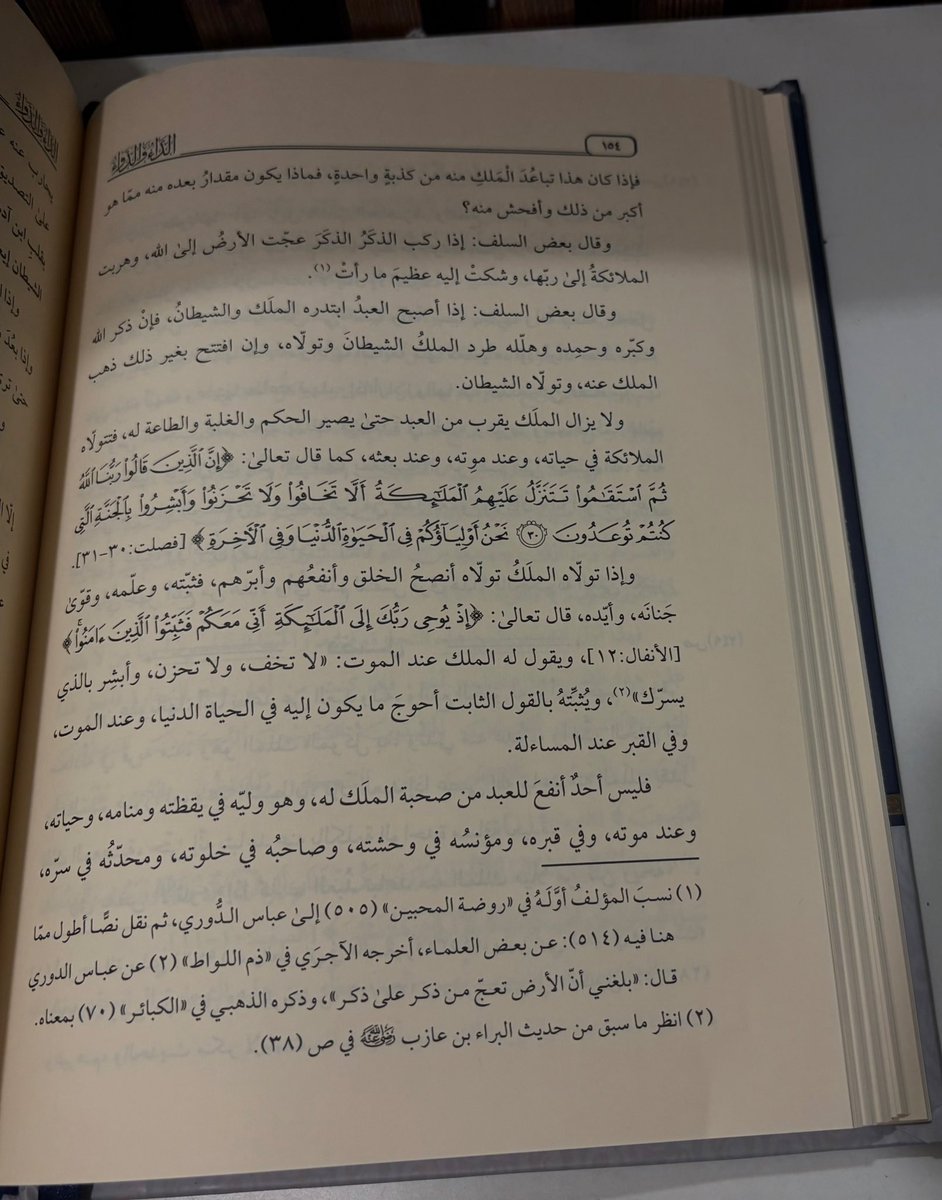 ١٥٤ الدَّاءُ وَالدَّوَاءُ
فإذا كان هذا تباعُدَ الْمَلكِ منه من كَذبةٍ واحدةٍ، فماذا يكون مقدارُ بعده منه ممّا هو
أكبر من ذلك وأفحش منه؟
وقال بعض السلف: إذا ركب الذكَرُ الذكَرَ عجّت الأرضُ إلىٰ الله، وهربت
الملائكةُ إلىٰ ربّها، وشكتْ إليه عظيمَ ما رأتْ (١).
وقال بعض السلف: إذا أصبح العبدُ ابتدره الملَك والشيطانُ، فإنْ ذكر الله
وكبّره وحمِده وهلّله طرد الملكُ الشيطانَ وتولّاه، وإن افتتح بغير ذلك ذهب
الملك عنه، وتولّاه الشيطان.
ولا يزال الملَك يقرب من العبد حتىٰ يصير الحكم والغلبة والطاعة له، فتتولّاه
الملائكة في حياته، وعند موته، وعند بعثه، كما قال تعالىٰ: ﴿إِنَّ ٱلَّذِينَ قَالُوا۟ رَبُّنَا ٱللَّهُ
ثُمَّ ٱسْتَقَٰمُوا۟ تَتَنَزَّلُ عَلَيْهِمُ ٱلْمَلَٰٓئِكَةُ أَلَّا تَخَافُوا۟ وَلَا تَحْزَنُوا۟ وَأَبْشِرُوا۟ بِٱلْجَنَّةِ ٱلَّتِى
كُنتُمْ تُوعَدُونَ ٣٠ نَحْنُ أَوْلِيَآؤُكُمْ فِى ٱلْحَيَوٰةِ ٱلدُّنْيَا وَفِى ٱلْأَخِرَةِ﴾ [فصلت: ٣٠-٣١].
وإذا تولاه الملَكُ تولاه أنصحُ الخلق وأنفعُهم وأبرّهم، فثبّته، وعلّمه، وقوّىٰ
جَنانَه، وأيّده، قال تعالىٰ: ﴿إِذْ يُوحِى رَبُّكَ إِلَى ٱلْمَلَٰٓئِكَةِ أَنِّى مَعَكُمْ فَثَبِّتُوا۟ ٱلَّذِينَ ءَامَنُوا۟﴾
[الأنفال: ١٢]، ويقول له الملك عند الموت: «لا تخف، ولا تحزن، وأبشِر بالذي
يسرّك» (٢)، ويُثبِّتهُ بالقول الثابت أحوجَ ما يكون إليه في الحياة الدنيا، وعند الموت،
وفي القبر عند المساءلة.
فليس أحدٌ أنفعَ للعبد من صحبة الملَك له، وهو وليّه في يقظته ومنامه، وحياته،
وعند موته، وفي قبره، ومؤنسُه في وحشته، وصاحبُه في خلوته، ومحدّثُه في سرّه،
(١) نسبَ المؤلفُ أوَّلَهُ في «روضة المحبين» (٥٠٥) إلىٰ عباس الدُّوري، ثم نقل نصًّا أطول ممّا
هنا فيه (٥١٤): عن بعض العلماء، أخرجه الآجرّي في «ذم اللواط» (٢) عن عباس الدوري
قال: «بلغني أنّ الأرض تعجّ من ذكر علىٰ ذكر»، وذكره الذهبي في «الكبائر» (٧٠) بمعناه.
(٢) انظر ما سبق من حديث البراء بن عازب رَضِيَ اللَّهُ عَنْهُ في ص (٣٨).